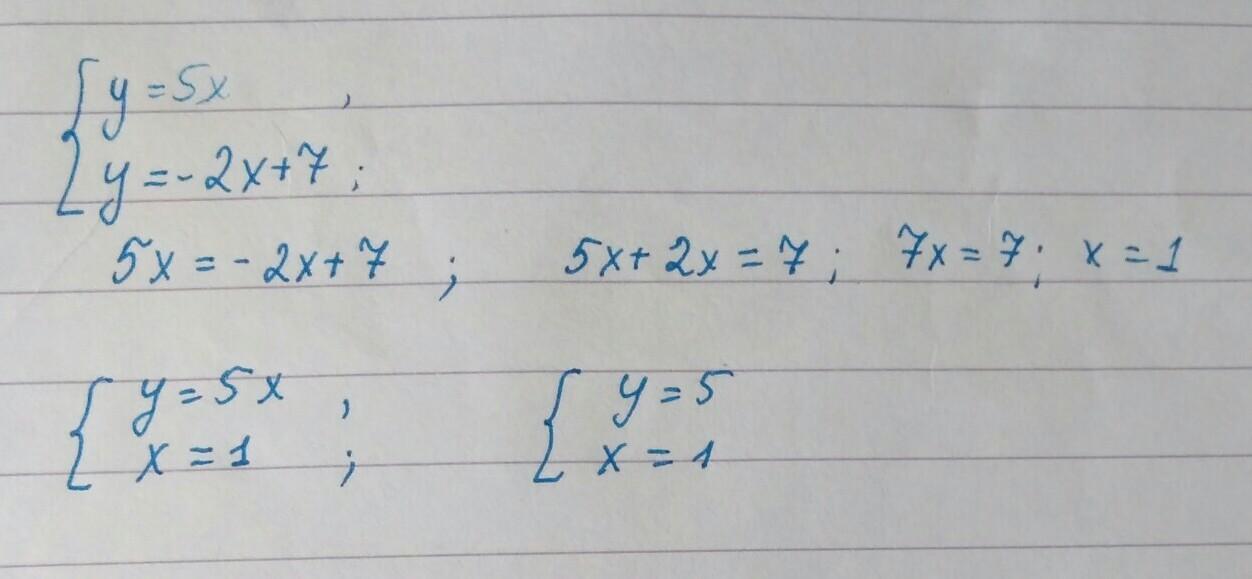 { y = 5x ,
y = -2x+7 ;
5x = -2x+7 ; 5x+2x = 7 ; 7x = 7 ; x = 1
{ y = 5x , { y = 5
x = 1 ; x = 1